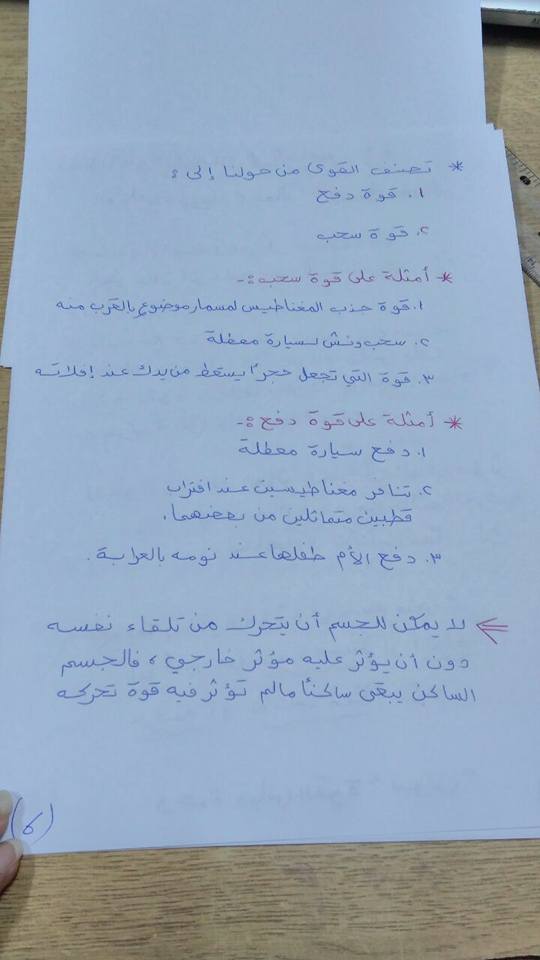 * تصنف القوى من حولنا إلى :
١. قوة دفع
٢. قوة سحب
* أمثلة على قوة سحب :-
١. قوة جذب المغناطيس لمسمار موضوع بالقرب منه
٢. سحب ونش لسيارة معطلة
٣. قوة التي تجعل حجرًا يسقط من يدك عند إفلاته
* أمثلة على قوة دفع :-
١. دفع سيارة معطلة
٢. تنافر مغناطيسين عند اقتراب
قطبين متماثلين من بعضهما.
٣. دفع الأم طفلها عند نومه بالعرابة.
لا يمكن للجسم أن يتحرك من تلقاء نفسه
دون أن يؤثر عليه مؤثر خارجي، فالجسم
الساكن يبقى ساكنًا مالم تؤثر فيه قوة تحركه